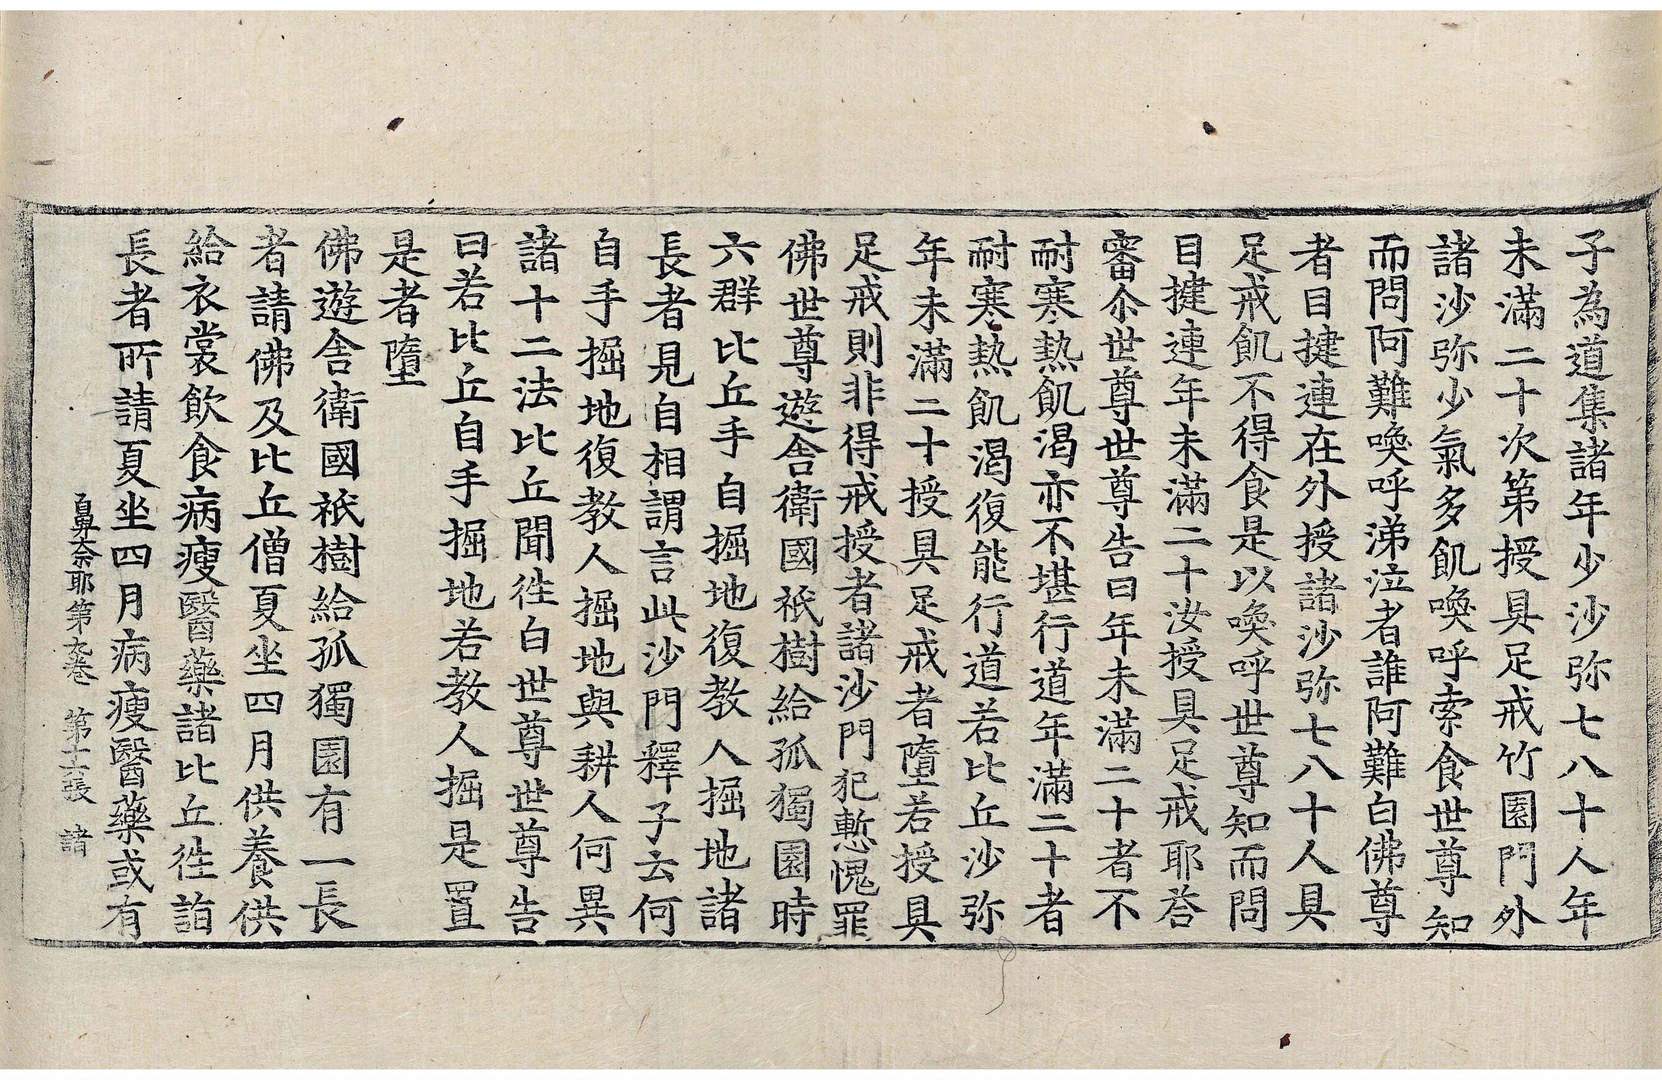 子為道集諸年少沙弥七八十人年
未滿二十次第授具足戒竹園門外
諸沙弥少氣多飢喚呼索食世尊知
而問阿難喚呼涕泣者誰阿難白佛尊
者目揵連在外授諸沙弥七八十人具
足戒飢不得食是以喚呼世尊知而問
目揵連年未滿二十汝授具足戒耶荅
審尒世尊世尊告曰年未滿二十者不
耐寒熱飢渴亦不堪行道年滿二十者
耐寒熱飢渴復能行道若比丘沙弥
年未滿二十授具足戒者墮若授具
足戒則非得戒授者諸沙門犯慙愧罪
佛世尊遊舎衛國祇樹給孤獨園時
六群比丘手自掘地復教人掘地諸
長者見自相謂言此沙門釋子云何
自手掘地復教人掘地與耕人何異
諸十二法比丘聞徃白世尊世尊告
曰若比丘自手掘地若教人掘是置
是者墮
佛遊舎衛國祇樹給孤獨園有一長
者請佛及比丘僧夏坐四月供養供
給衣裳飲食病瘦醫藥諸比丘徃詣
長者所請夏坐四月病瘦醫藥或有
鼻奈耶第九卷 第十六張 諸